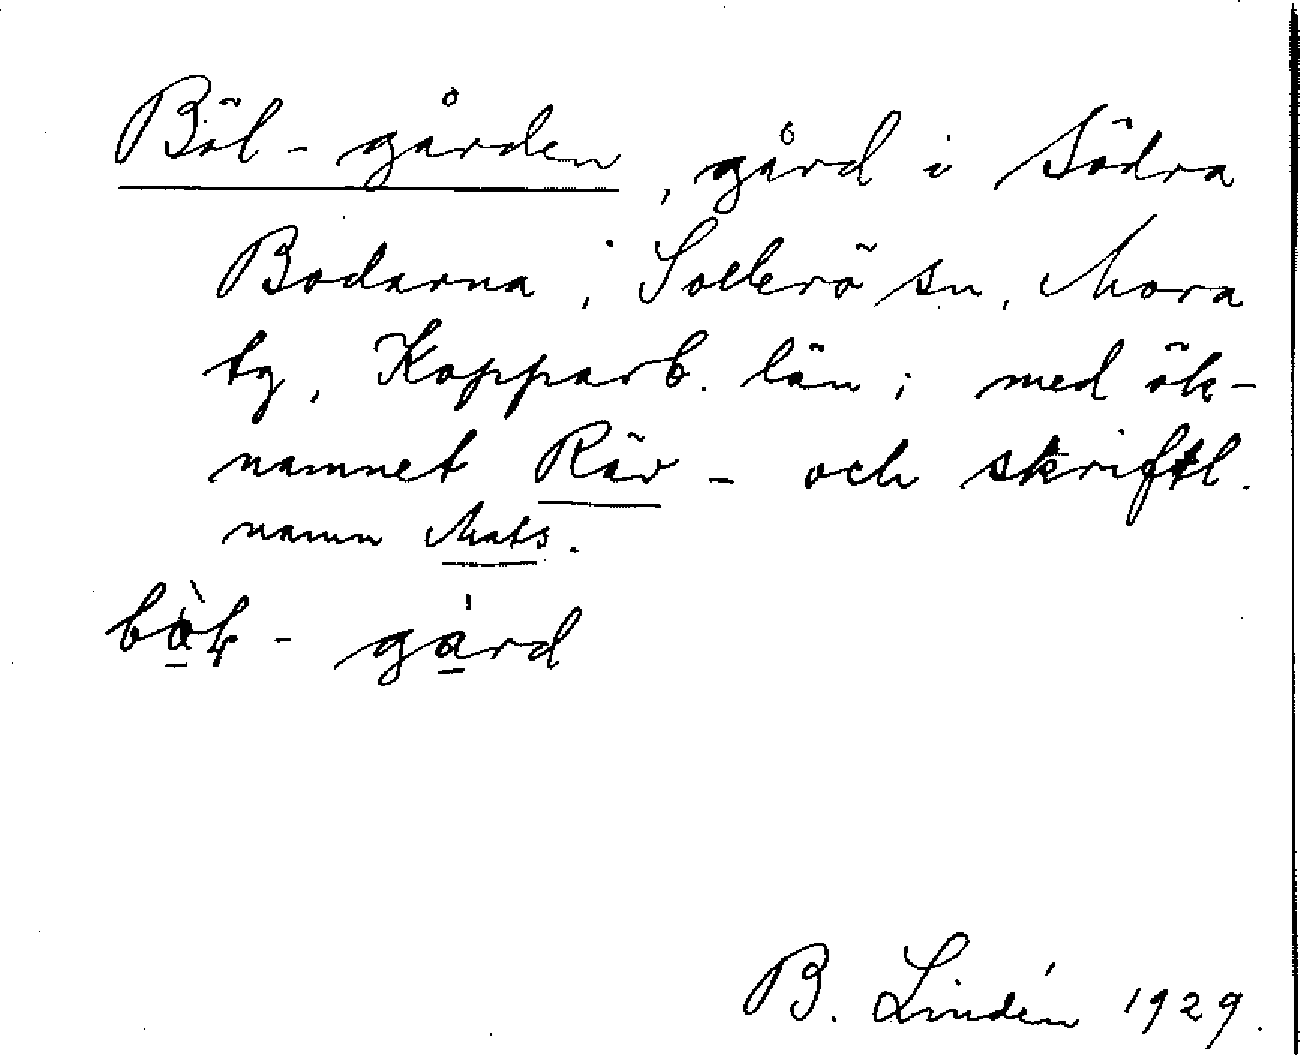 Böl-gården, gård i Södra
Bodarna, Sollerö sn, Mora
tg, Kopparb. län; med ök-
namnet Räv- och skriftl.
namn Mats.
gård
B. Lindén 1929.